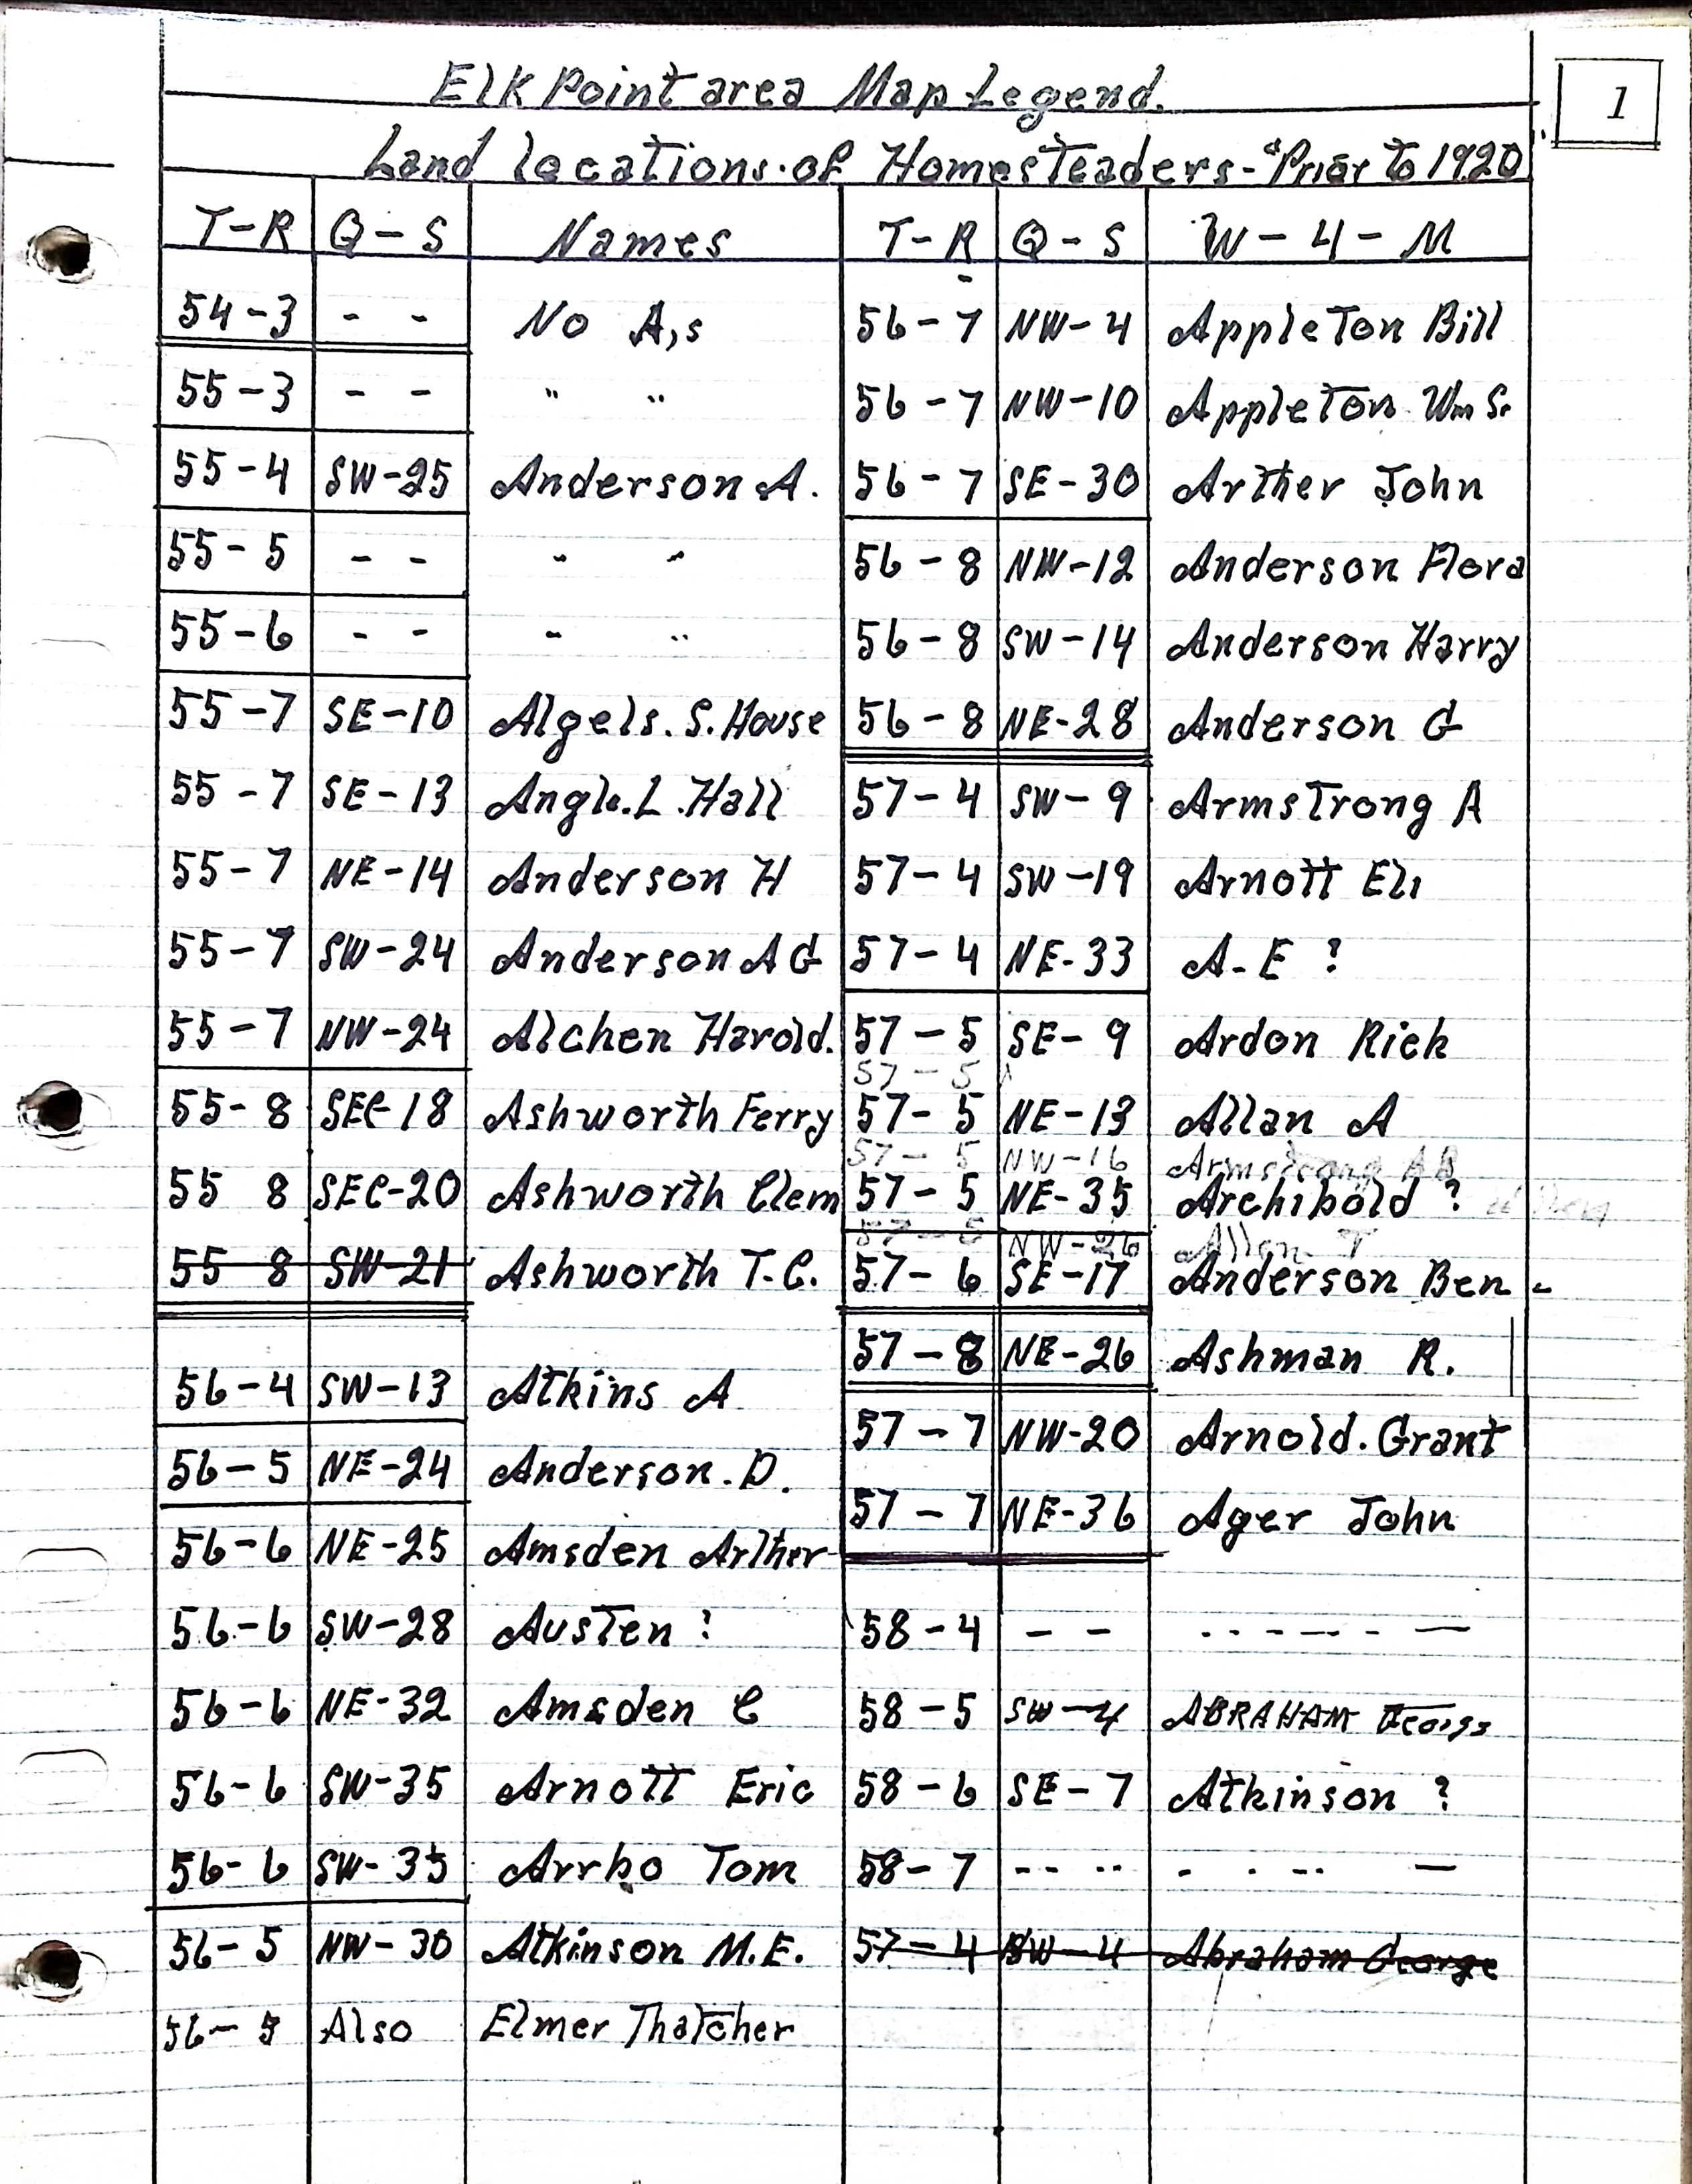 Elk Point area Map Legend.
1
Land locations of Homesteaders - "Prior to 1920"
T-R Q-S Names
54-3 - - No A,s
55-3 - - " "
55-4 SW-25 Anderson A.
55-5 - - " "
55-6 - - " "
55-7 SE-10 Algels. S. House
55-7 SE-13 Angle. L. Hall
55-7 NE-14 Anderson H
55-7 SW-24 Anderson A G
55-7 NW-24 Alchen Harold.
55-8 SEC-18 Ashworth Ferry
55 8 SEC-20 Ashworth Clem
55 8 SW-21 Ashworth T.C.
56-4 SW-13 Atkins A
56-5 NE-24 Anderson. D.
56-6 NE-25 Amsden Arther
56-6 SW-28 Austen ?
56-6 NE-32 Amsden C
56-6 SW-35 Arnott Eric
56-6 SW-35 Tom
56-5 NW-30 Atkinson M.E.
56-5 Also Elmer Thatcher
T-R Q-S W-4-M
56-7 NW-4 Appleton Bill
56-7 NW-10 Appleton Wm Sr
56-7 SE-30 Arther John
56-8 NW-12 Anderson Flora
56-8 SW-14 Anderson Harry
56-8 NE-28 Anderson G
57-4 SW-9 Armstrong A
57-4 SW-19 Arnott Eli
57-4 NE-33 A-E ?
57-5 SE-9 Ardon Rich
57-5
57-5 NE-13 Allan A
57-5 NW-16 Armstrong
57-5 NE-35 Archibold ?
57-5 NW-26 Allen T
57-6 SE-17 Anderson Ben
57-8 NE-26 Ashman R.
57-7 NW-20 Arnold. Grant
57-7 NE-36 Ager John
58-4 - - - - - - - -
58-5 SW-4 ABRAHAM George
58-6 SE-7 Atkinson ?
58-7 - - - - - - - - -
57-4 SW-4 Abraham George